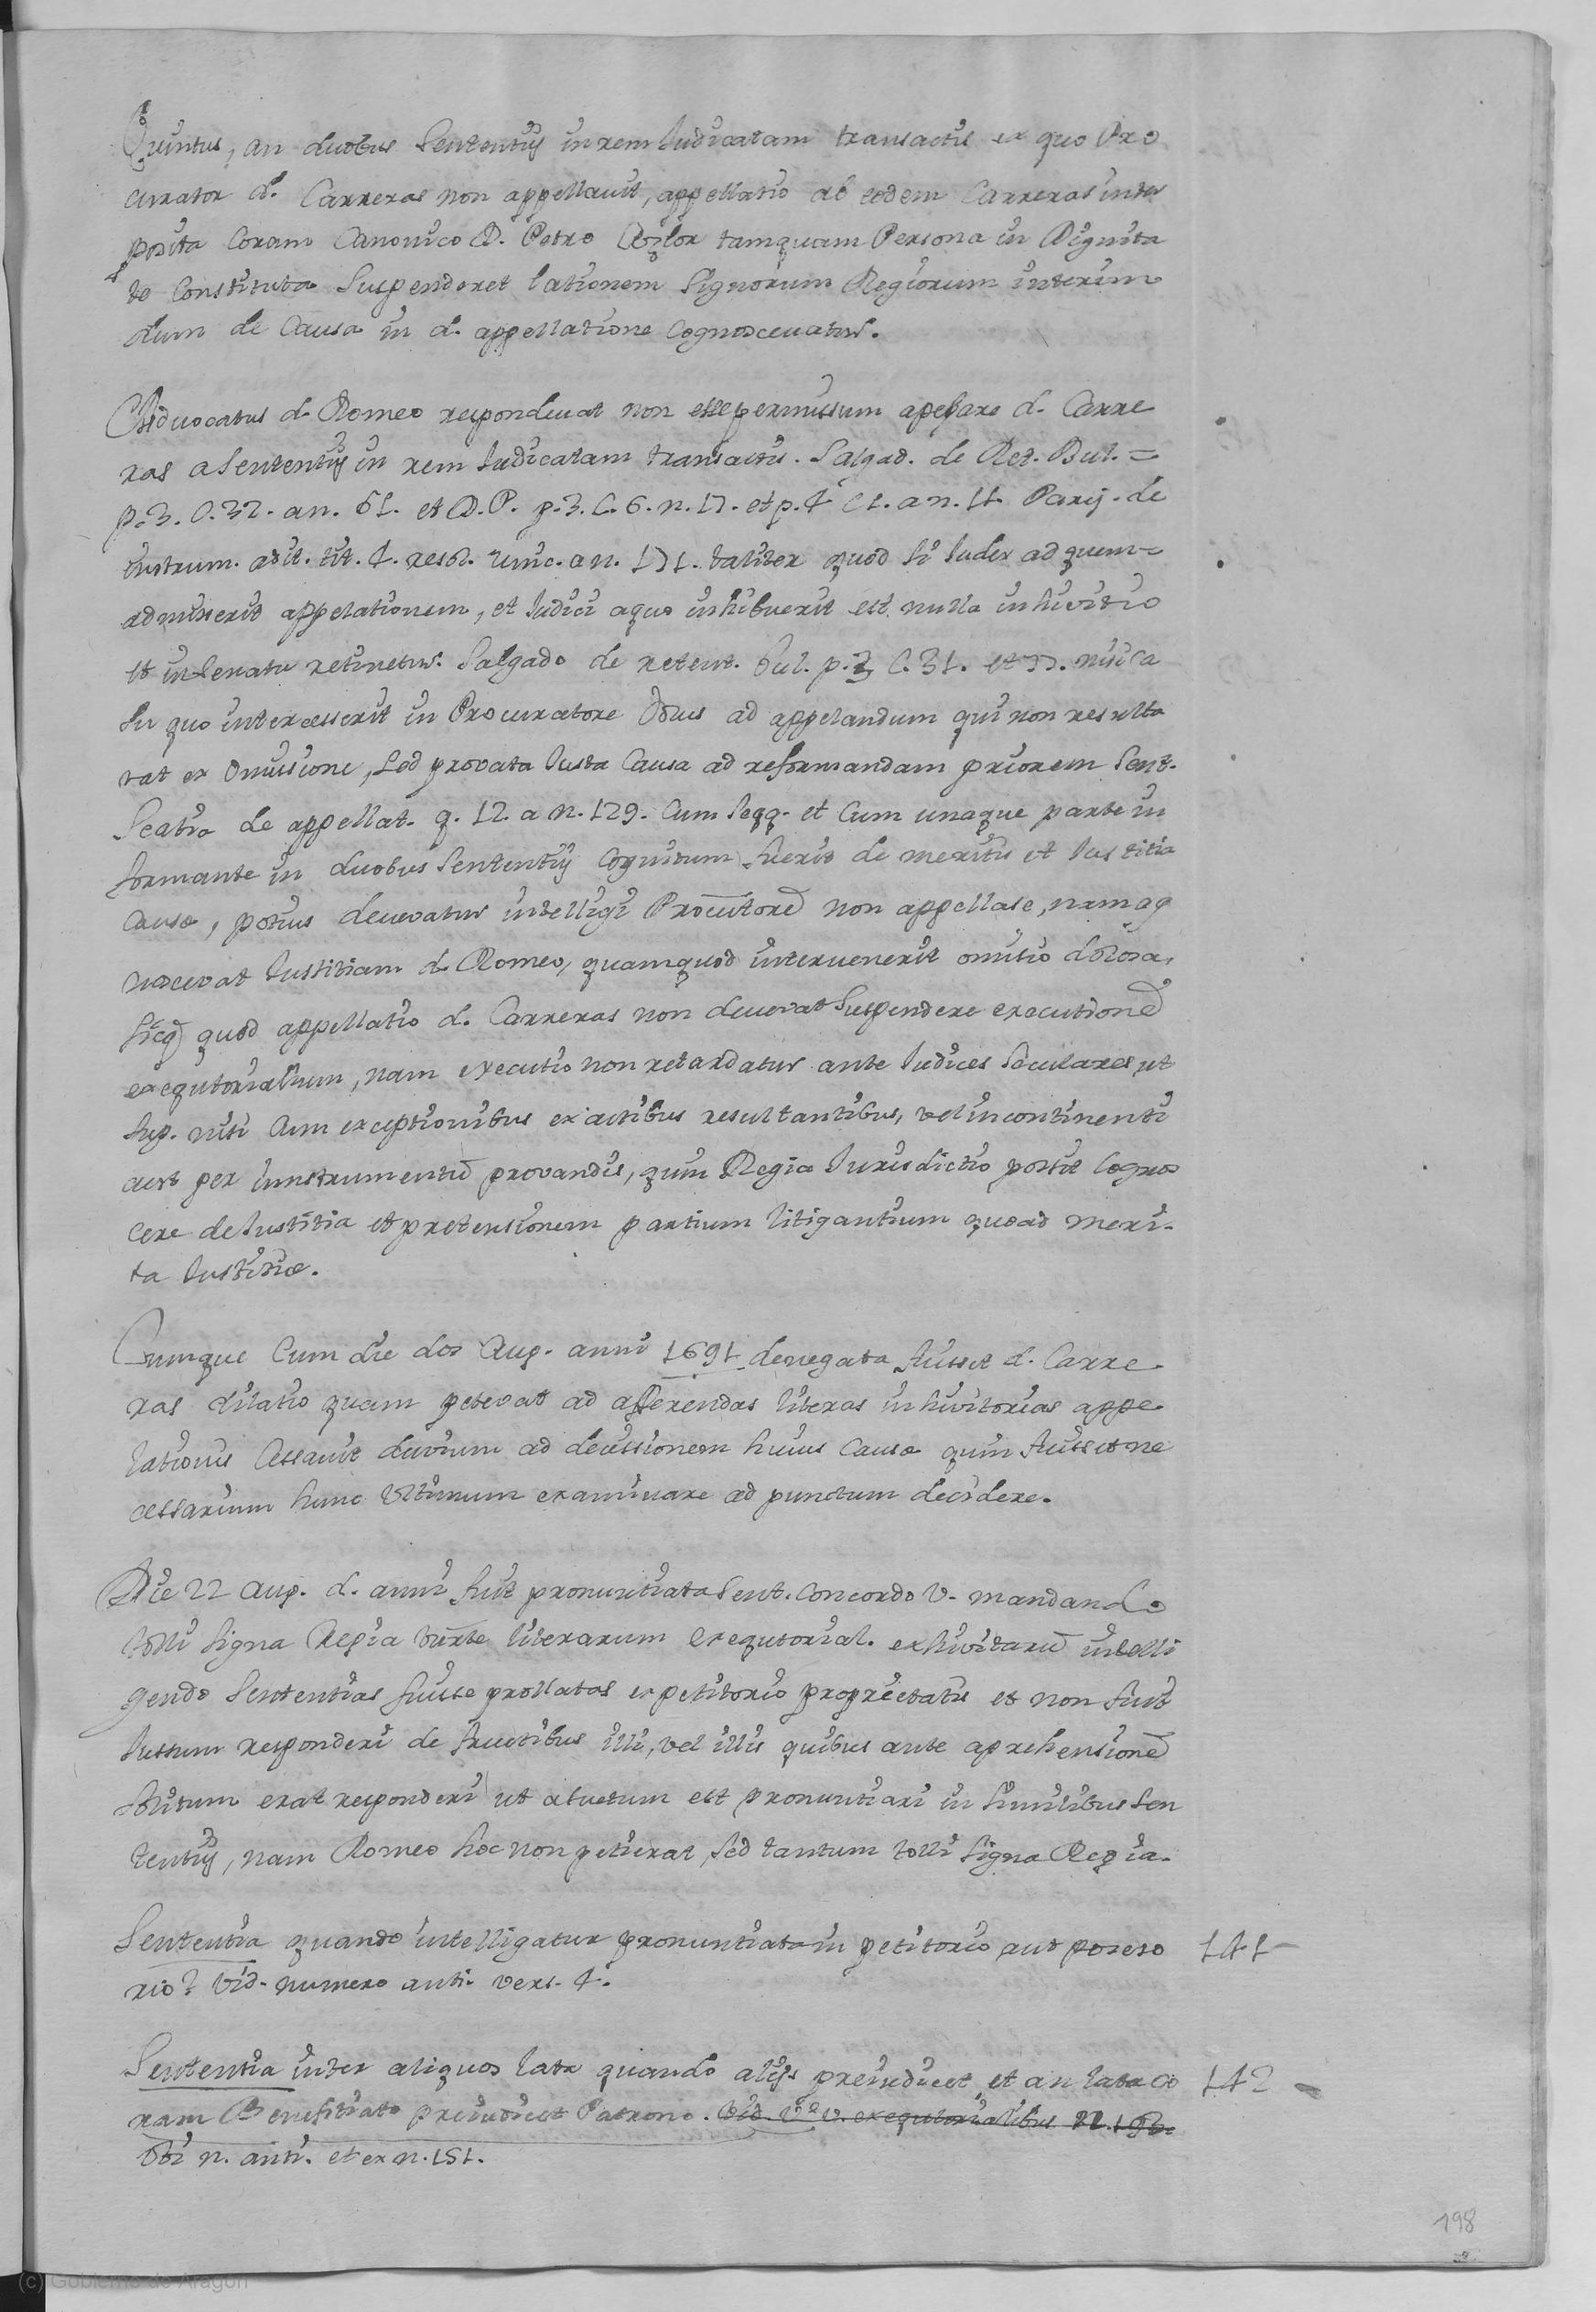 Quintus, an duobus Sententijs in rem Iudicatam transactis ex quo Pro
curator d. Carreras non appellavit, appellatio ab eodem Carreras inter
posita Coram Canonico D. Petro tamquam Persona in Dignita
te Constituta Suspenderet lationem Signorum Regiorum interim
dum de Causa in d. appellatione Cognosceuatur.
Aduocatus d. Romeo respondeuat non esse permissum apelare d. Carre
ras a Sententijs in rem Iudicatam transactis. Salgad. de Ret. Bul. =
p. 3. C. 32. an. 61. et D. P. p. 3. C. 6. n. 17. et p. 4. C 1. a n. 11. Parej. de
instrum. edit. tit. 4. resol. unic. a n. 171. taliter quod si Iudex ad quem =
admisserit appelationem, et Iudici a quo inhibuerit est nulla inhivitio
et in Senatu retinetur. Salgado de retent. Bul. p. 3 C. 31. et 33. nisi Ca
su quo intercesserit in Procuratore Dolus ad appelandum qui non resulta
vat ex Omisione, Sed provata Iusta Causa ad reformandam priorem Sent.
Scatia de appellat. q. 12. a n. 129. Cum Seqq. et Cum unaque parte in
formante in duobus Sententijs Cognitum fuerit de meritis et Iustitia
Causæ, potius deuevatur intelligi Procutorē non appellase, nam ag
noscevat Iustitiam d. Romeo, quam quod intervenerit omitio dolosa,
Sicq quod appellatio d. Carreras non deuevat Suspendere executionē
exequtorialium, nam executio non retardatur ante Iudices Seculares, ut
Sup. nisi Cum exceptionibus ex actibus resultantibus, vel incontinenti
aut per Innstrumentū provandis, quin Regia Iurisdictio possit Cognos
cere de Iustitia et pretensionem partium litigantium quoad Meri-
ta Iustitiæ.
Cumque Cum die dos Aug. anni 1691 denegata fuisset d. Carre-
ras dilatio quam petevat ad afferendas literas inhivitorias appe
lationis Cessavit duvium ad decissionem huius Causæ quin fuisset ne
cessarium hunc Ultimum examinare ad punctum decidere.
Die 22 aug. d. anni fuit pronuntiata Sent. Concordo V. mandando
tolli Signa Regia virte literarum exequtorial. exhivitarū intelli
gendo Sententias fuisse prollatas in petitorio proprietatis et non fuit
Iussum responderi de fructibus illi, vel illis quibus ante aprehensionē
Solitum erat responderi ut asuetum est pronuntiari in Similibus Sen
tentijs, nam Romeo hoc non petierat, Sed tantum tolli Signa Regia.
Sententia quando intelligatur pronuntiata in petitorio aut poseso 141
rio? Vid. numero anti. vers. 4.
Sententia inter aliquos lata quando alijs preiudicet et an lata Co 142
ram Benefitiato preiudicet Patrono. Vid. exequtorialibus n.
Ubi n. anti. et ex n. 151.
198
(c) Gobierno de Aragón